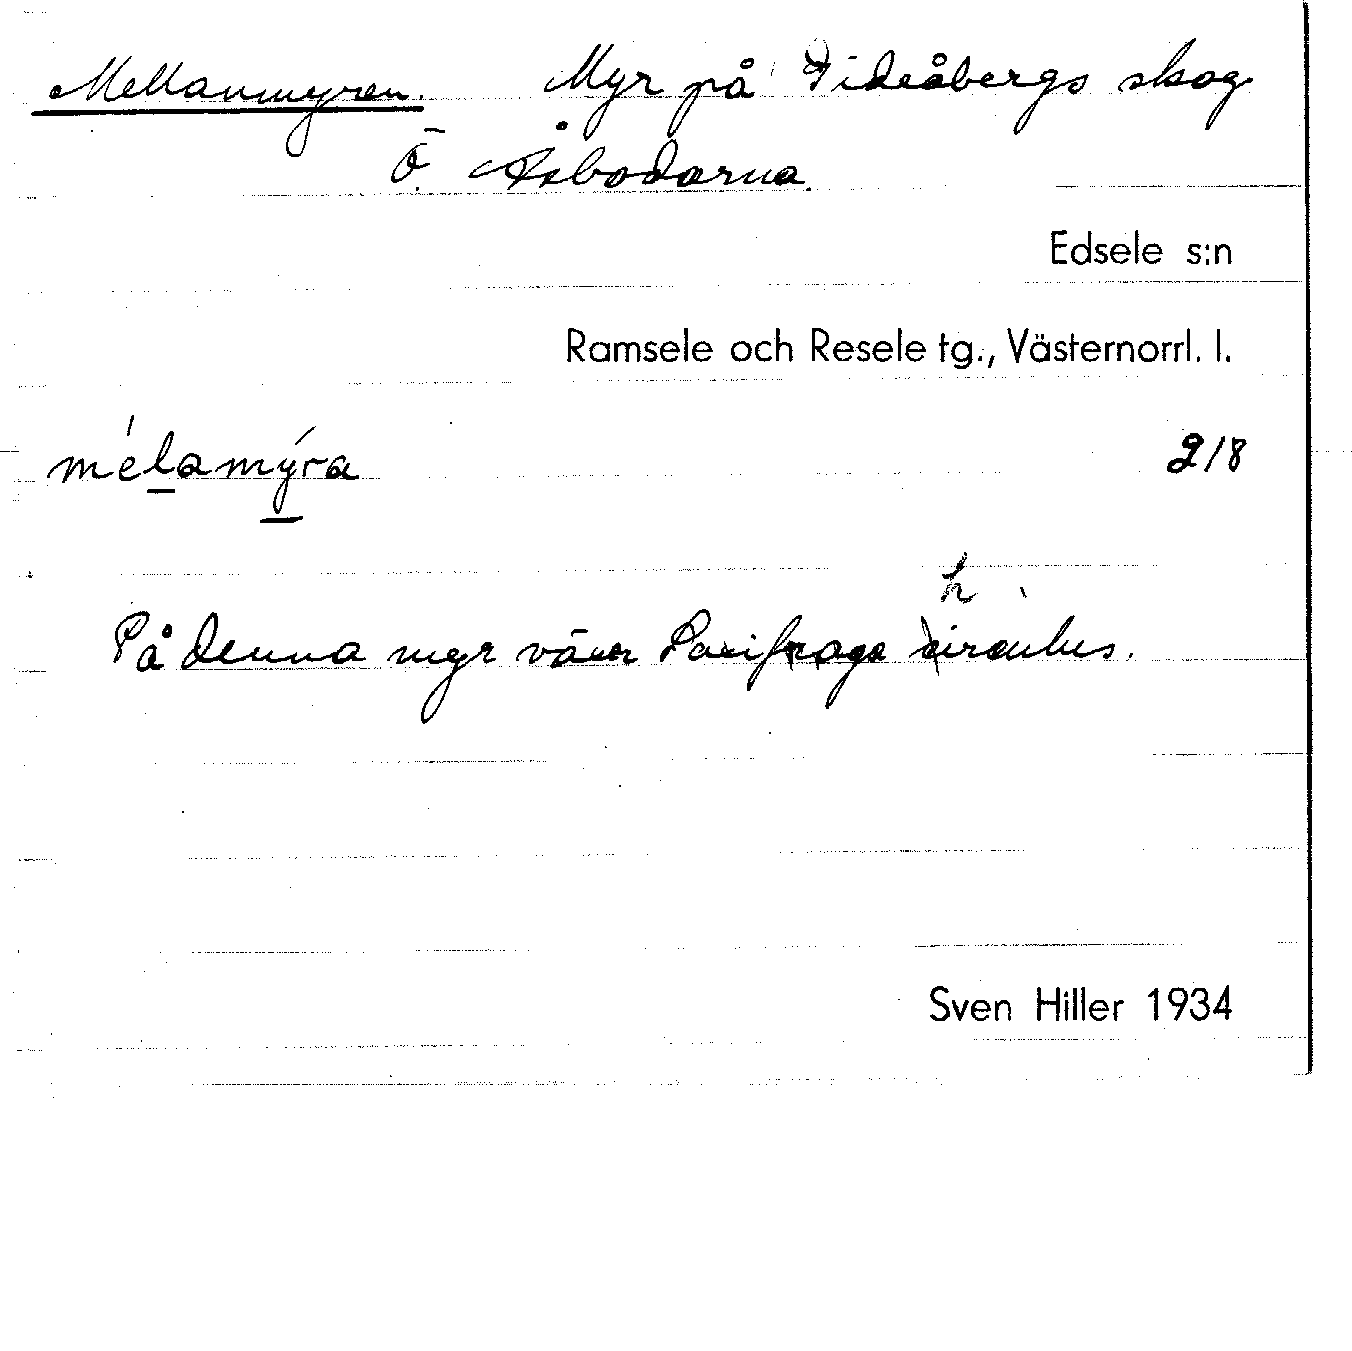 Mellanmyren. Myr på Fideåbergs skog
Ö Åsbodarna.
Edsele s:n
Ramsele och Resele tg., Västernorrl. l.
mélamýra 2/8
h
På denna myr växer Saxifraga circulus.
Sven Hiller 1934